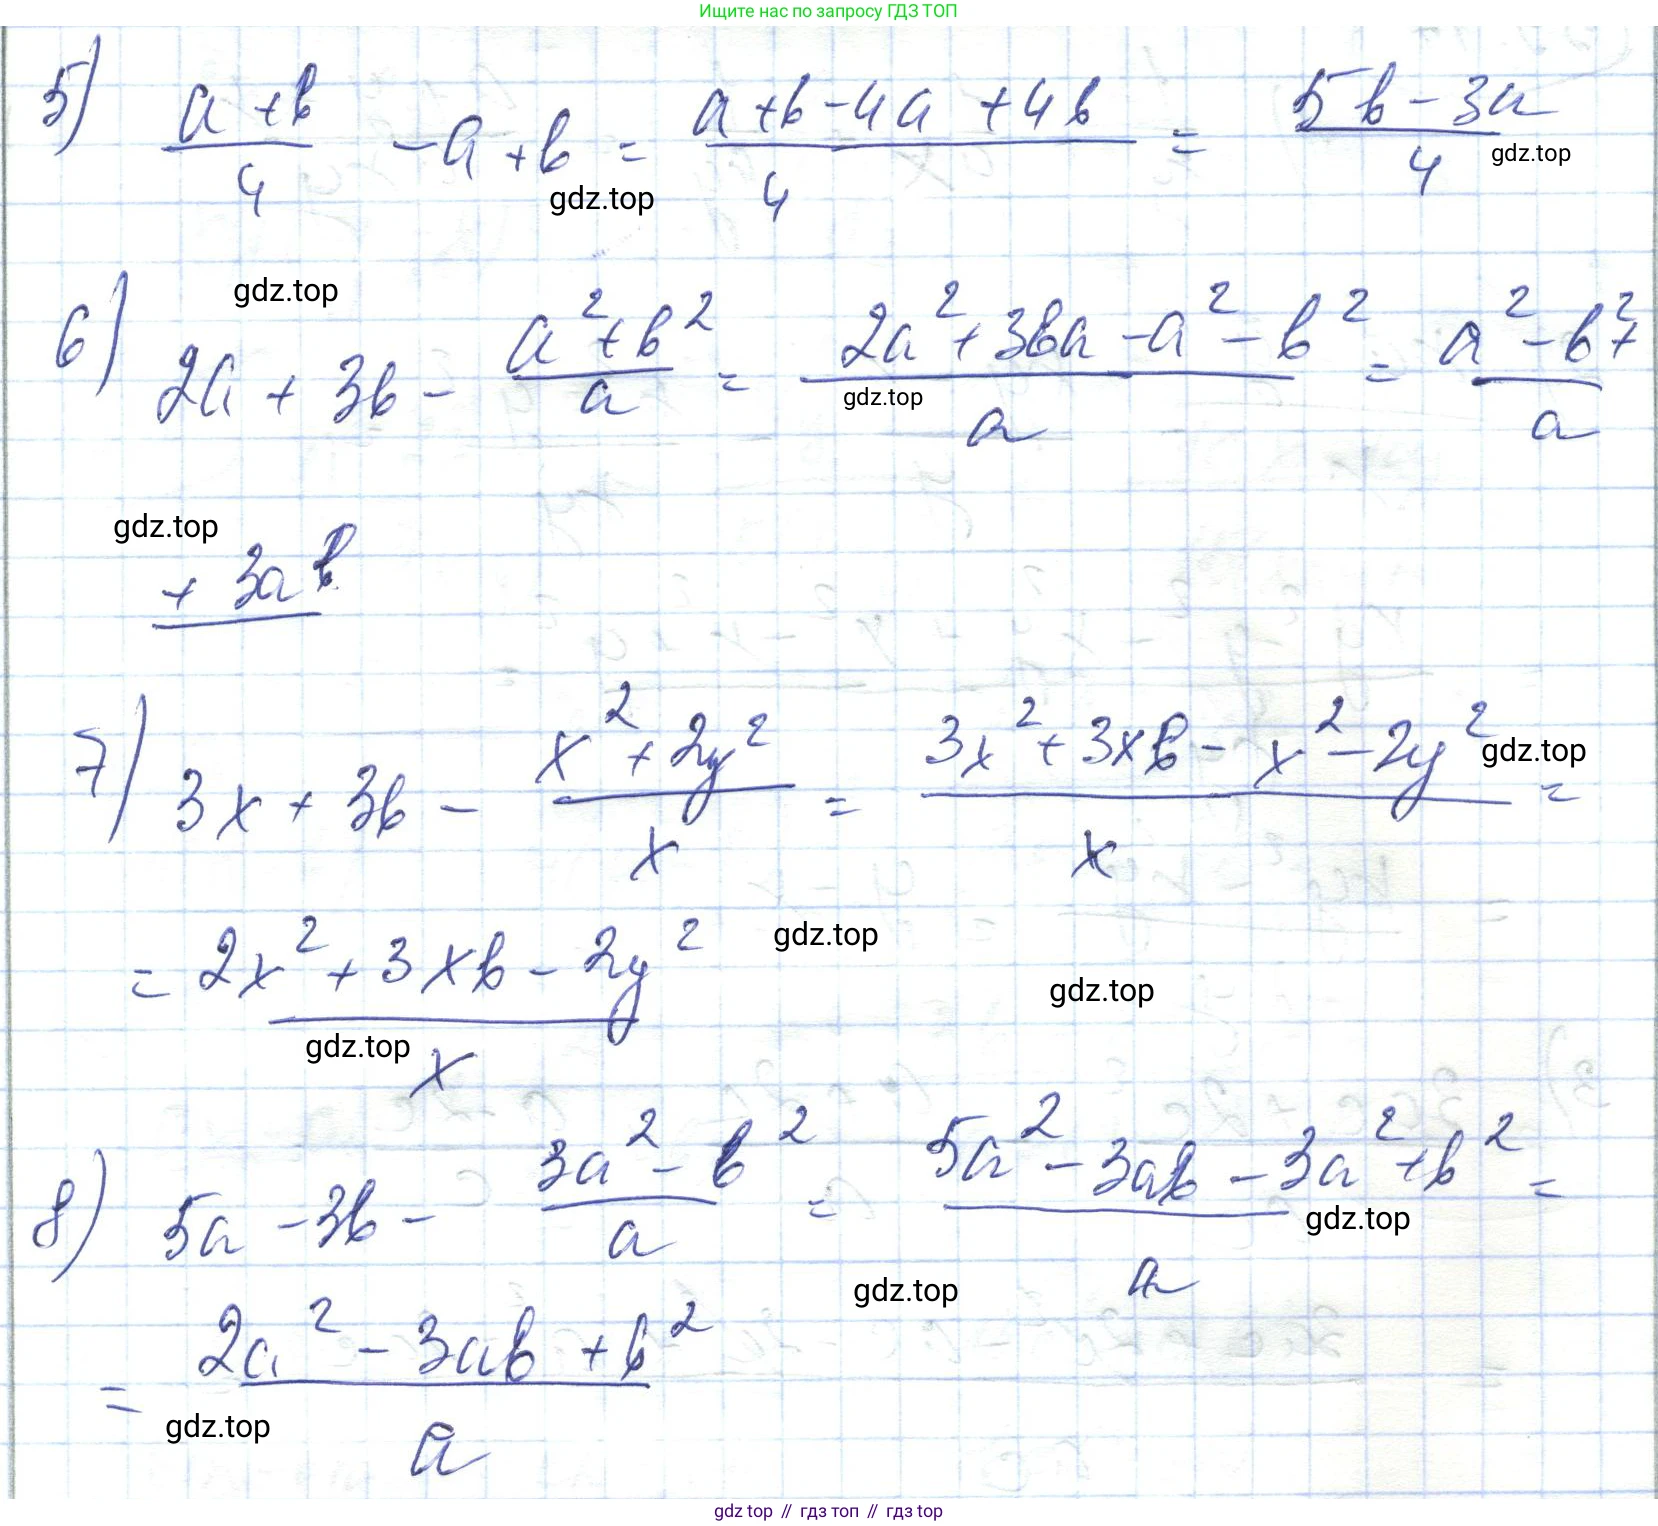 Ищите нас по запросу ГДЗ ТОП
5) (a+b)/4 - a + b = (a+b-4a+4b)/4 = (5b-3a)/4
gdz.top gdz.top
gdz.top
6) 2a + 3b - (a²+b²)/a = (2a²+3ba-a²-b²)/a = (a²-b²+)/a
gdz.top
gdz.top
+ 3ab
7) 3x + 3b - (x²+2y²)/x = (3x²+3xb-x²-2y²)/x =
gdz.top
= (2x²+3xb-2y²)/x
gdz.top
gdz.top
gdz.top
8) 5a - 3b - (3a²-b²)/a = (5a²-3ab-3a²+b²)/a =
gdz.top
gdz.top
= (2a²-3ab+b²)/a
gdz.top
gdz top // гдз топ // гдз top